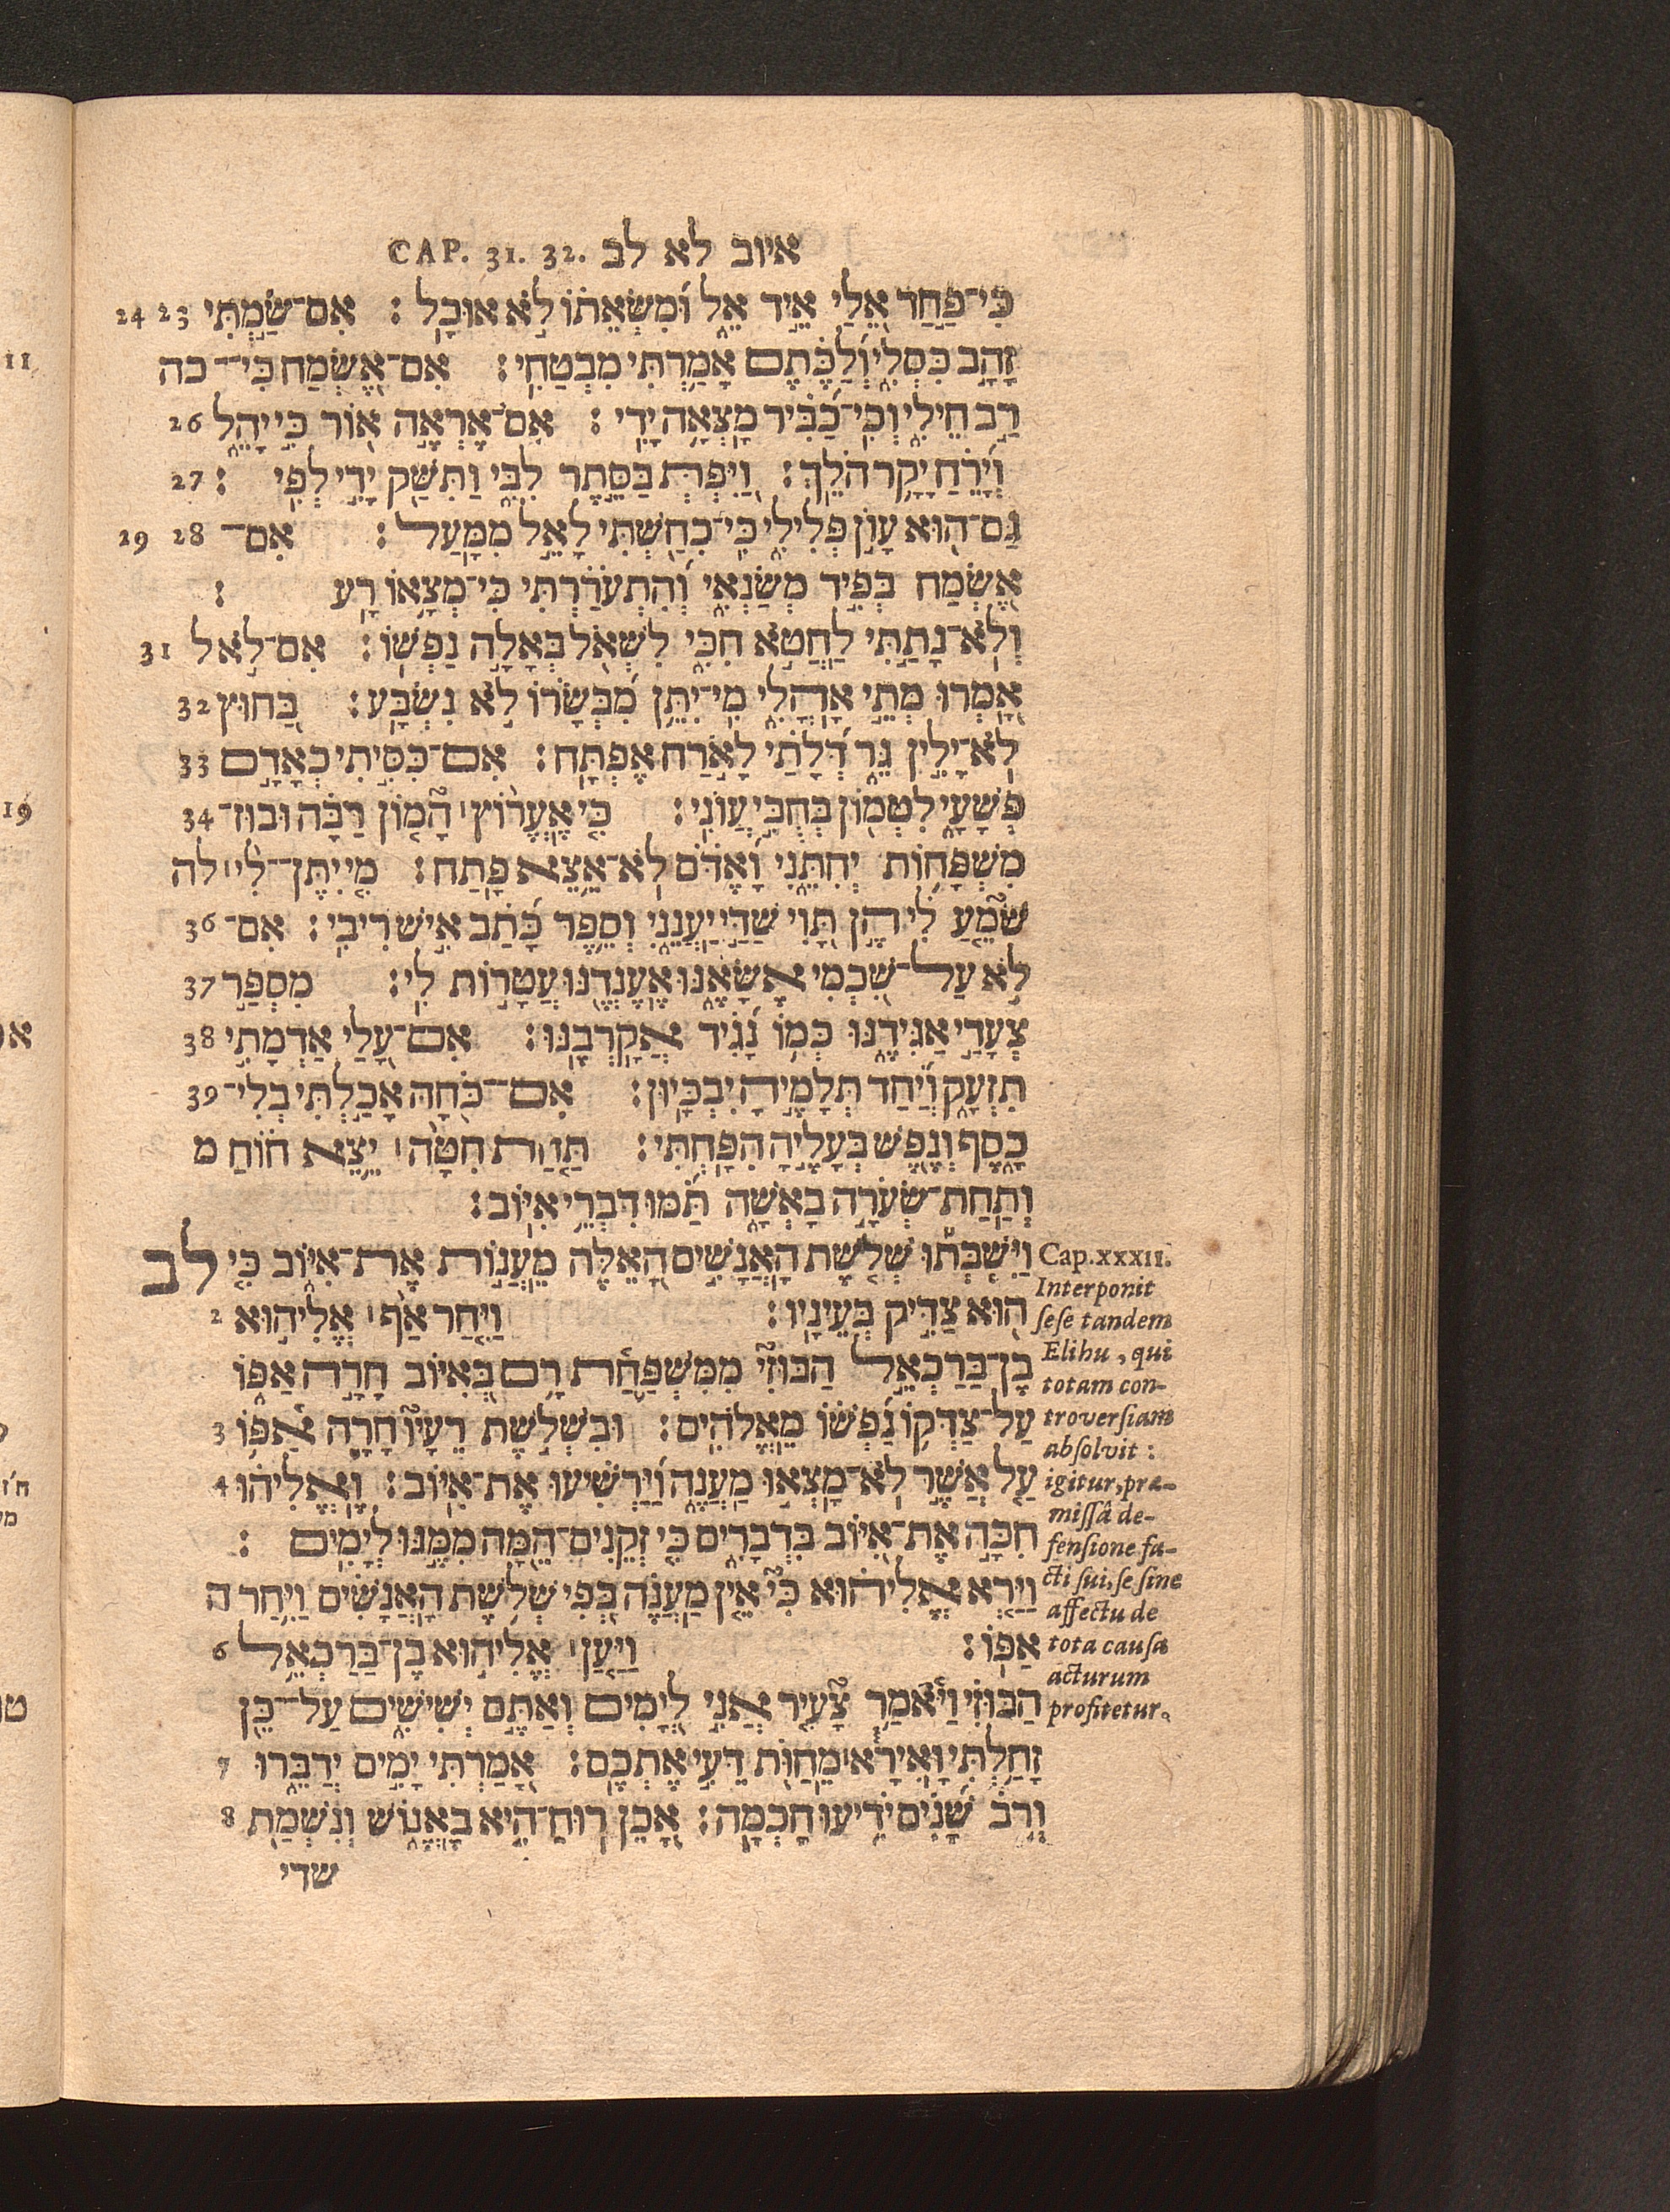 איוב לא לב CAP. 31. 32.
כִּי־פַחַד אֵלַי אֵיד אֵל וּמִשְּׂאֵתוֹ לֹא אוּכָל׃ אִם־שַׂמְתִּי 23 24
זָהָב כִּסְלִי וְלַכֶּתֶם אָמַרְתִּי מִבְטַחִי׃ אִם־אֶשְׂמַח כִּי־ כה
רַב חֵילִי וְכִי־כַבִּיר מָצְאָה יָדִי׃ אִם־אֶרְאֶה אוֹר כִּי יָהֵל 26
וְיָרֵחַ יָקָר הֹלֵךְ׃ וַיִּפְתְּ בַּסֵּתֶר לִבִּי וַתִּשַּׁק יָדִי לְפִי׃ 27
גַּם־הוּא עָוֹן פְּלִילִי כִּי־כִחַשְׁתִּי לָאֵל מִמָּעַל׃ אִם־ 28 29
אֶשְׂמַח בְּפִיד מְשַׂנְאִי וְהִתְעֹרַרְתִּי כִּי־מְצָאוֹ רָע׃
וְלֹא־נָתַתִּי לַחֲטֹא חִכִּי לִשְׁאֹל בְּאָלָה נַפְשׁוֹ׃ אִם־לֹא ל 31
אָמְרוּ מְתֵי אָהֳלִי מִי־יִתֵּן מִבְּשָׂרוֹ לֹא נִשְׂבָּע׃ בַּחוּץ 32
לֹא־יָלִין גֵּר דְּלָתַי לָאֹרַח אֶפְתָּח׃ אִם־כִּסִּיתִי כְאָדָם 33
פְּשָׁעָי לִטְמוֹן בְּחֻבִּי עֲוֹנִי׃ כִּי אֶעֱרוֹץ׀ הָמוֹן רַבָּה וּבוּז־ 34
מִשְׁפָּחוֹת יְחִתֵּנִי וָאֶדֹּם לֹא־אֵצֵא פָתַח׃ מִי יִתֶּן־לִי׀ לה
שֹׁמֵעַ לִי הֶן תָּוִי שַׁדַּי יַעֲנֵנִי וְסֵפֶר כָּתַב אִישׁ רִיבִי׃ אִם־ 36
לֹא עַל־שִׁכְמִי אֶשָּׂאֶנּוּ אֶעֶנְדֶנּוּ עֲטָרוֹת לִי׃ מִסְפַּר 37
צְעָדַי אַגִּידֶנּוּ כְּמוֹ נָגִיד אֲקָרְבֶנּוּ׃ אִם־עָלַי אַדְמָתִי 38
תִזְעָק וְיַחַד תְּלָמֶיהָ יִבְכָּיוּן׃ אִם־כֹּחָהּ אָכַלְתִּי בְלִי־ 39
כָסֶף וְנֶפֶשׁ בְּעָלֶיהָ הִפָּחְתִּי׃ תַּחַת חִטָּה׀ יֵצֵא חוֹחַ מ
וְתַחַת־שְׂעֹרָה בָאְשָׁה תַּמּוּ דִּבְרֵי אִיּוֹב׃
Cap.XXXII. וַיִּשְׁבְּתוּ שְׁלֹשֶׁת הָאֲנָשִׁים הָאֵלֶּה מֵעֲנוֹת אֶת־אִיּוֹב כִּי לב
הוּא צַדִּיק בְּעֵינָיו׃ וַיִּחַר אַף׀ אֱלִיהוּא 2
בֶן־בַּרַכְאֵל הַבּוּזִי מִמִּשְׁפַּחַת רָם בְּאִיּוֹב חָרָה אַפּוֹ
עַל־צַדְּקוֹ נַפְשׁוֹ מֵאֱלֹהִים׃ וּבִשְׁלֹשֶׁת רֵעָיו חָרָה אַפּוֹ 3
עַל אֲשֶׁר לֹא־מָצְאוּ מַעֲנֶה וַיַּרְשִׁיעוּ אֶת־אִיּוֹב׃ וֶאֱלִיהוּ 4
חִכָּה אֶת־אִיּוֹב בִּדְבָרִים כִּי זְקֵנִים־הֵמָּה מִמֶּנּוּ לְיָמִים׃
וַיַּרְא אֱלִיהוּא כִּי אֵין מַעֲנֶה בְּפִי שְׁלֹשֶׁת הָאֲנָשִׁים וַיִּחַר ה
אַפּוֹ׃ וַיַּעַן׀ אֱלִיהוּא בֶן־בַּרַכְאֵל 6
הַבּוּזִי וַיֹּאמַר צָעִיר אֲנִי לְיָמִים וְאַתֶּם יְשִׁישִׁים עַל־כֵּן
זָחַלְתִּי וָאִירָא׀ מֵחַוֹּת דֵּעִי אֶתְכֶם׃ אָמַרְתִּי יָמִים יְדַבֵּרוּ 7
וְרֹב שָׁנִים יֹדִיעוּ חָכְמָה׃ אָכֵן רוּחַ־הִיא בֶאֱנוֹשׁ וְנִשְׁמַת 8
שדי
Interponit
sese tandem
Elihu, qui
totam con-
troversiam
absolvit:
igitur, præ-
missâ de-
fensione fa-
cti sui, se sine
affectu de
tota causa
acturum
profitetur.